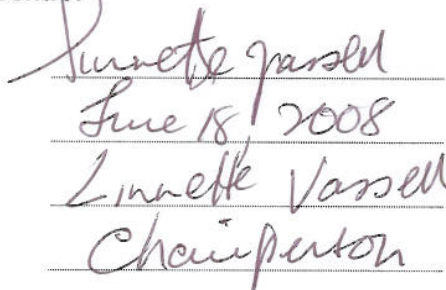 Linnette Vassell
June 18, 2008
Linnette Vassell
Chairperson